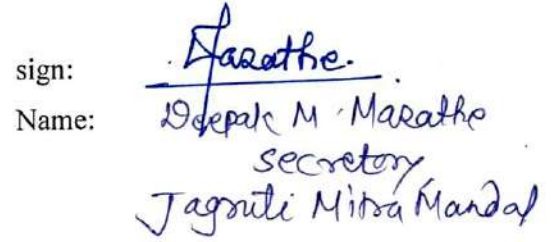 sign: Marathe.
Name: Deepak M. Marathe
secretory
Jagruti Mitra Mandal